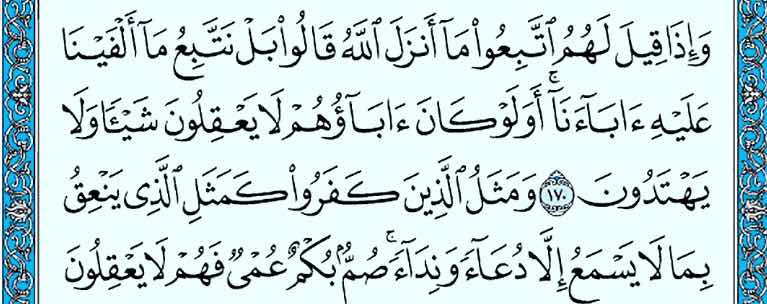 وَإِذَا قِيلَ لَهُمُ ٱتَّبِعُوا۟ مَآ أَنزَلَ ٱللَّهُ قَالُوا۟ بَلْ نَتَّبِعُ مَآ أَلْفَيْنَا
عَلَيْهِ ءَابَآءَنَآ ۗ أَوَلَوْ كَانَ ءَابَآؤُهُمْ لَا يَعْقِلُونَ شَيْـًٔا وَلَا
يَهْتَدُونَ ١٧٠ وَمَثَلُ ٱلَّذِينَ كَفَرُوا۟ كَمَثَلِ ٱلَّذِى يَنْعِقُ
بِمَا لَا يَسْمَعُ إِلَّا دُعَآءً وَنِدَآءً ۚ صُمٌّۢ بُكْمٌ عُمْىٌ فَهُمْ لَا يَعْقِلُونَ